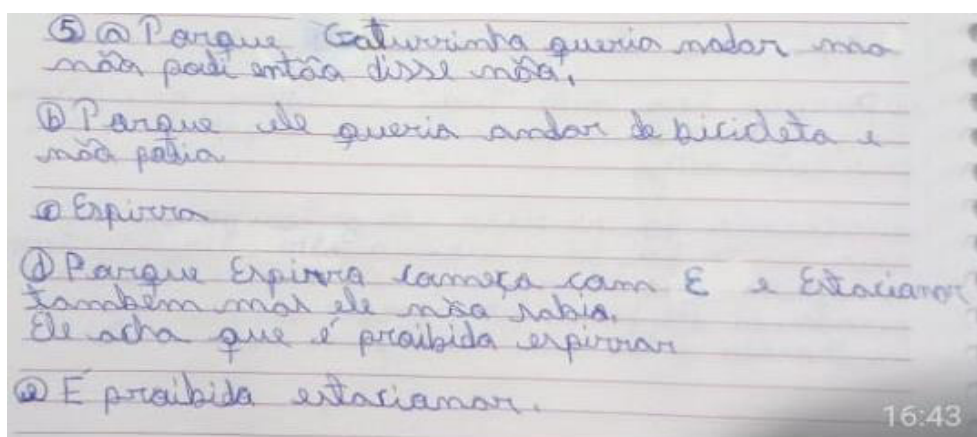 ⑤ ⓐ Porque Gaturrinho queria nadar mas
não podi então disse não.
ⓑ Porque ele queria andar de bicicleta e
não podia
ⓒ Espirro
ⓓ Porque Espirro começa com E e Estacionar
também mas ele não sabia.
Ele acha que é proibido espirrar
ⓔ É proibido estacionar.
16:43